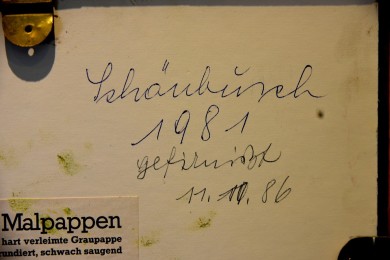 Schönbusch
1981
gefirnißt
11.10.86
Malpappen
hart verleimte Graupappe
rundiert, schwach saugend